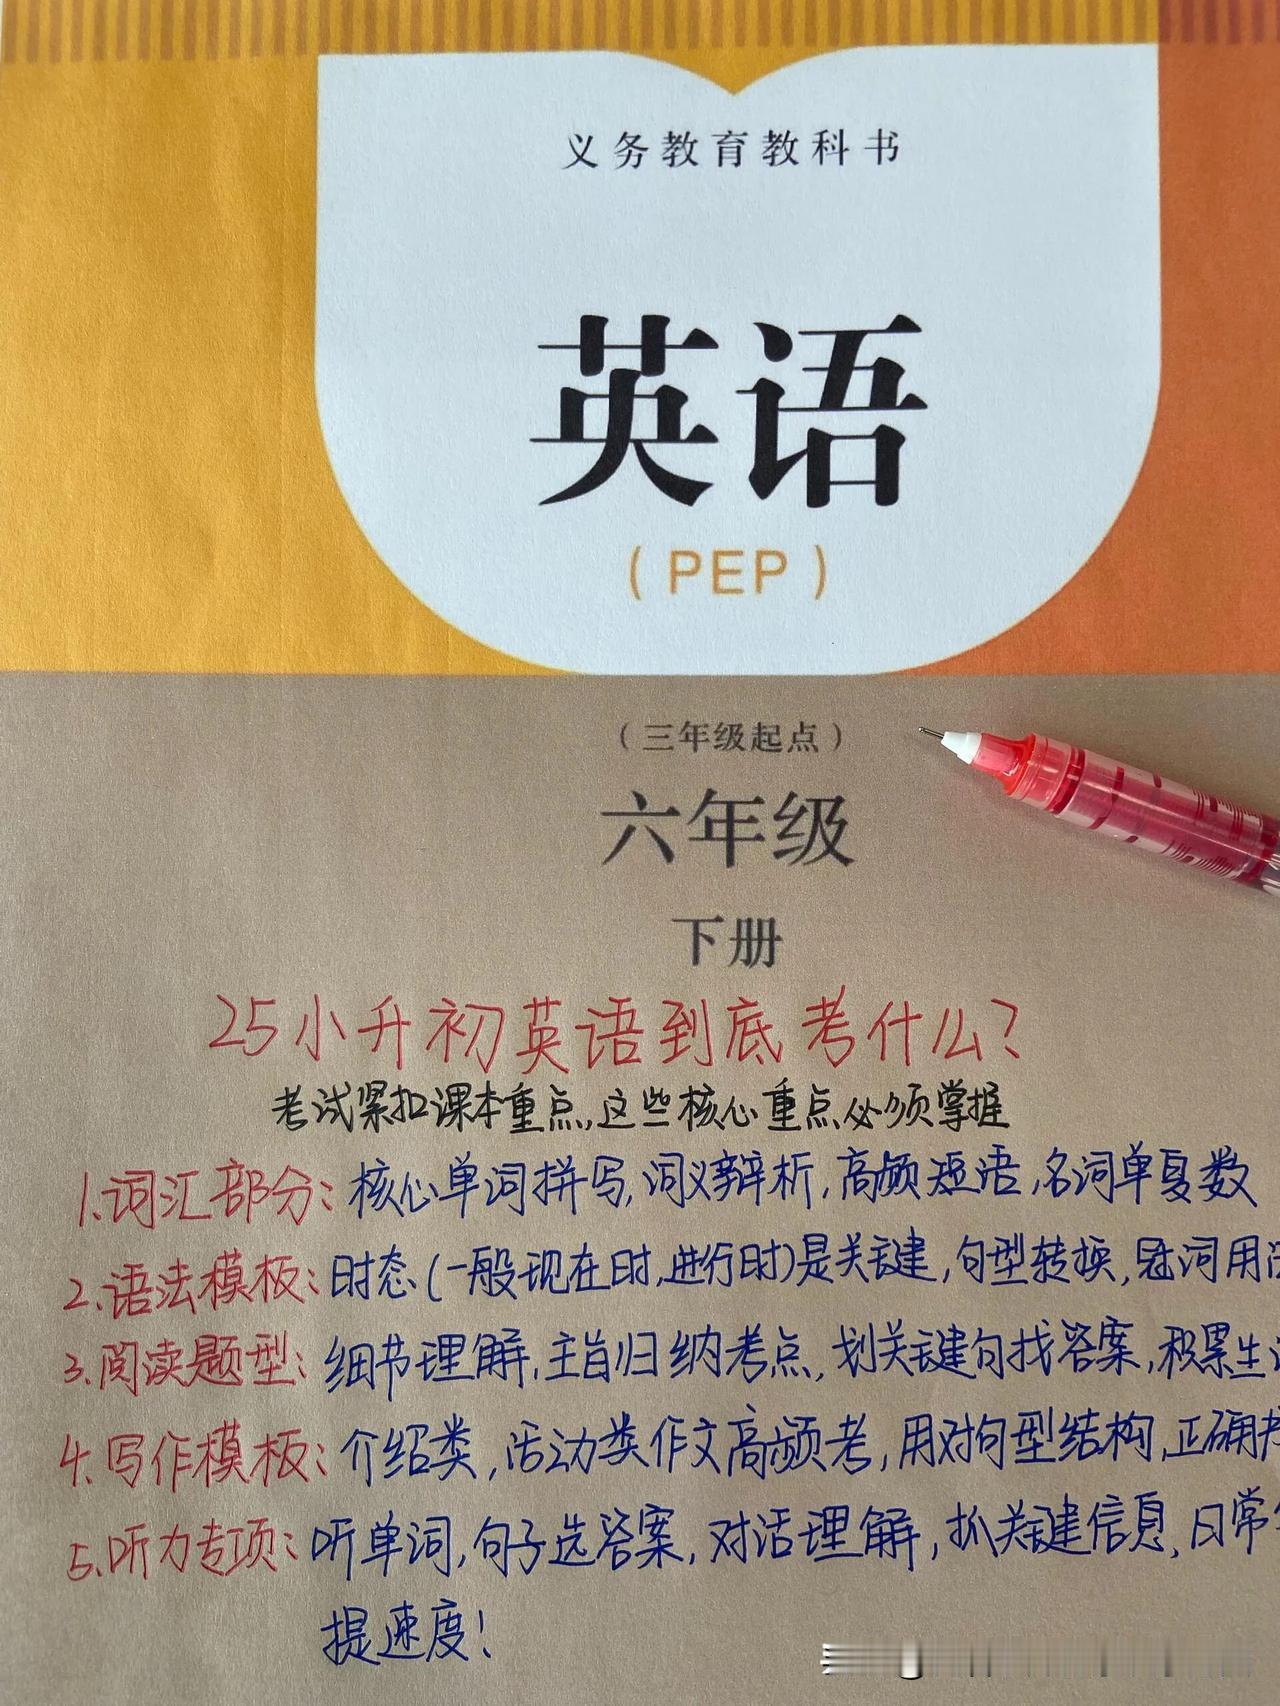 义务教育教科书
英语
(PEP)
(三年级起点)
六年级
下册
25小升初英语到底考什么?
考试紧扣课本重点,这些核心重点必须掌握
1.词汇部分:核心单词拼写,词义辩析,高频短语,名词单复数
2.语法模板:时态(一般现在时,进行时)是关键,句型转换,冠词用
3.阅读题型:细节理解,主旨归纳考点,划关键句找答案,积累生
4.写作模板:介绍类,活动类作文高频考,用对句型结构,正确
5.听力专项:听单词,句子选答案,对话理解,抓关键信息,日常
提速度!